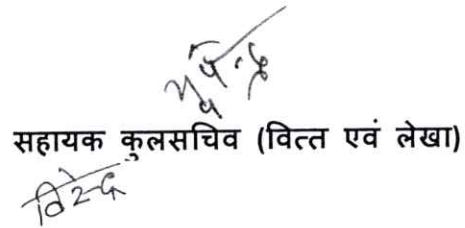 सहायक कुलसचिव (वित्त एवं लेखा)